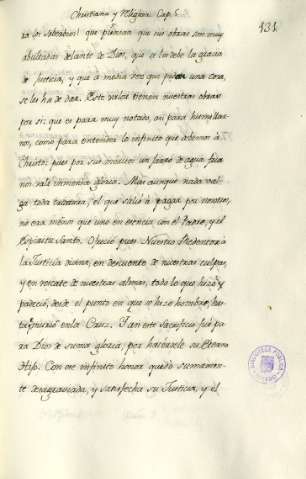 Christiana y Religiosa Cap. 6
131.
que piensan que sus obras son muy
delante de Dios, que se les debe la gracia
de Justicia, y que à media voz que pidan una cosa,
se les ha de dar. Este valor tienen nuestras obras
por sì: que es para muy notado, asi para humillar-
nos, como para entender lo infinito que debemos à
Christo: pues por sus meritos un jarro de agua fria
nos vale tamaña gloria. Mas aunque nada val-
ga toda criatura, el que saliò à pagar por nosotros,
no era menos que uno en esencia con el Padre, y el
Espiritu Santo. Ofreciò pues Nuestro Redentor à
la Justicia divina, en descuento de nuestras culpas,
y en rescate de nuestras almas, todo lo que hizo, y
padeciò, desde el punto en que se hizo hombre, has-
ta que muriò en la Cruz. Y an este Sacrificio fuè pa-
ra Dios de suma gloria, por hacersele su Eterno
Hijo. Con este infinito honor quedò sumamen-
te desagraviada, y satisfecha su Justicia, y el
BIBLIOTECA PUBLICA